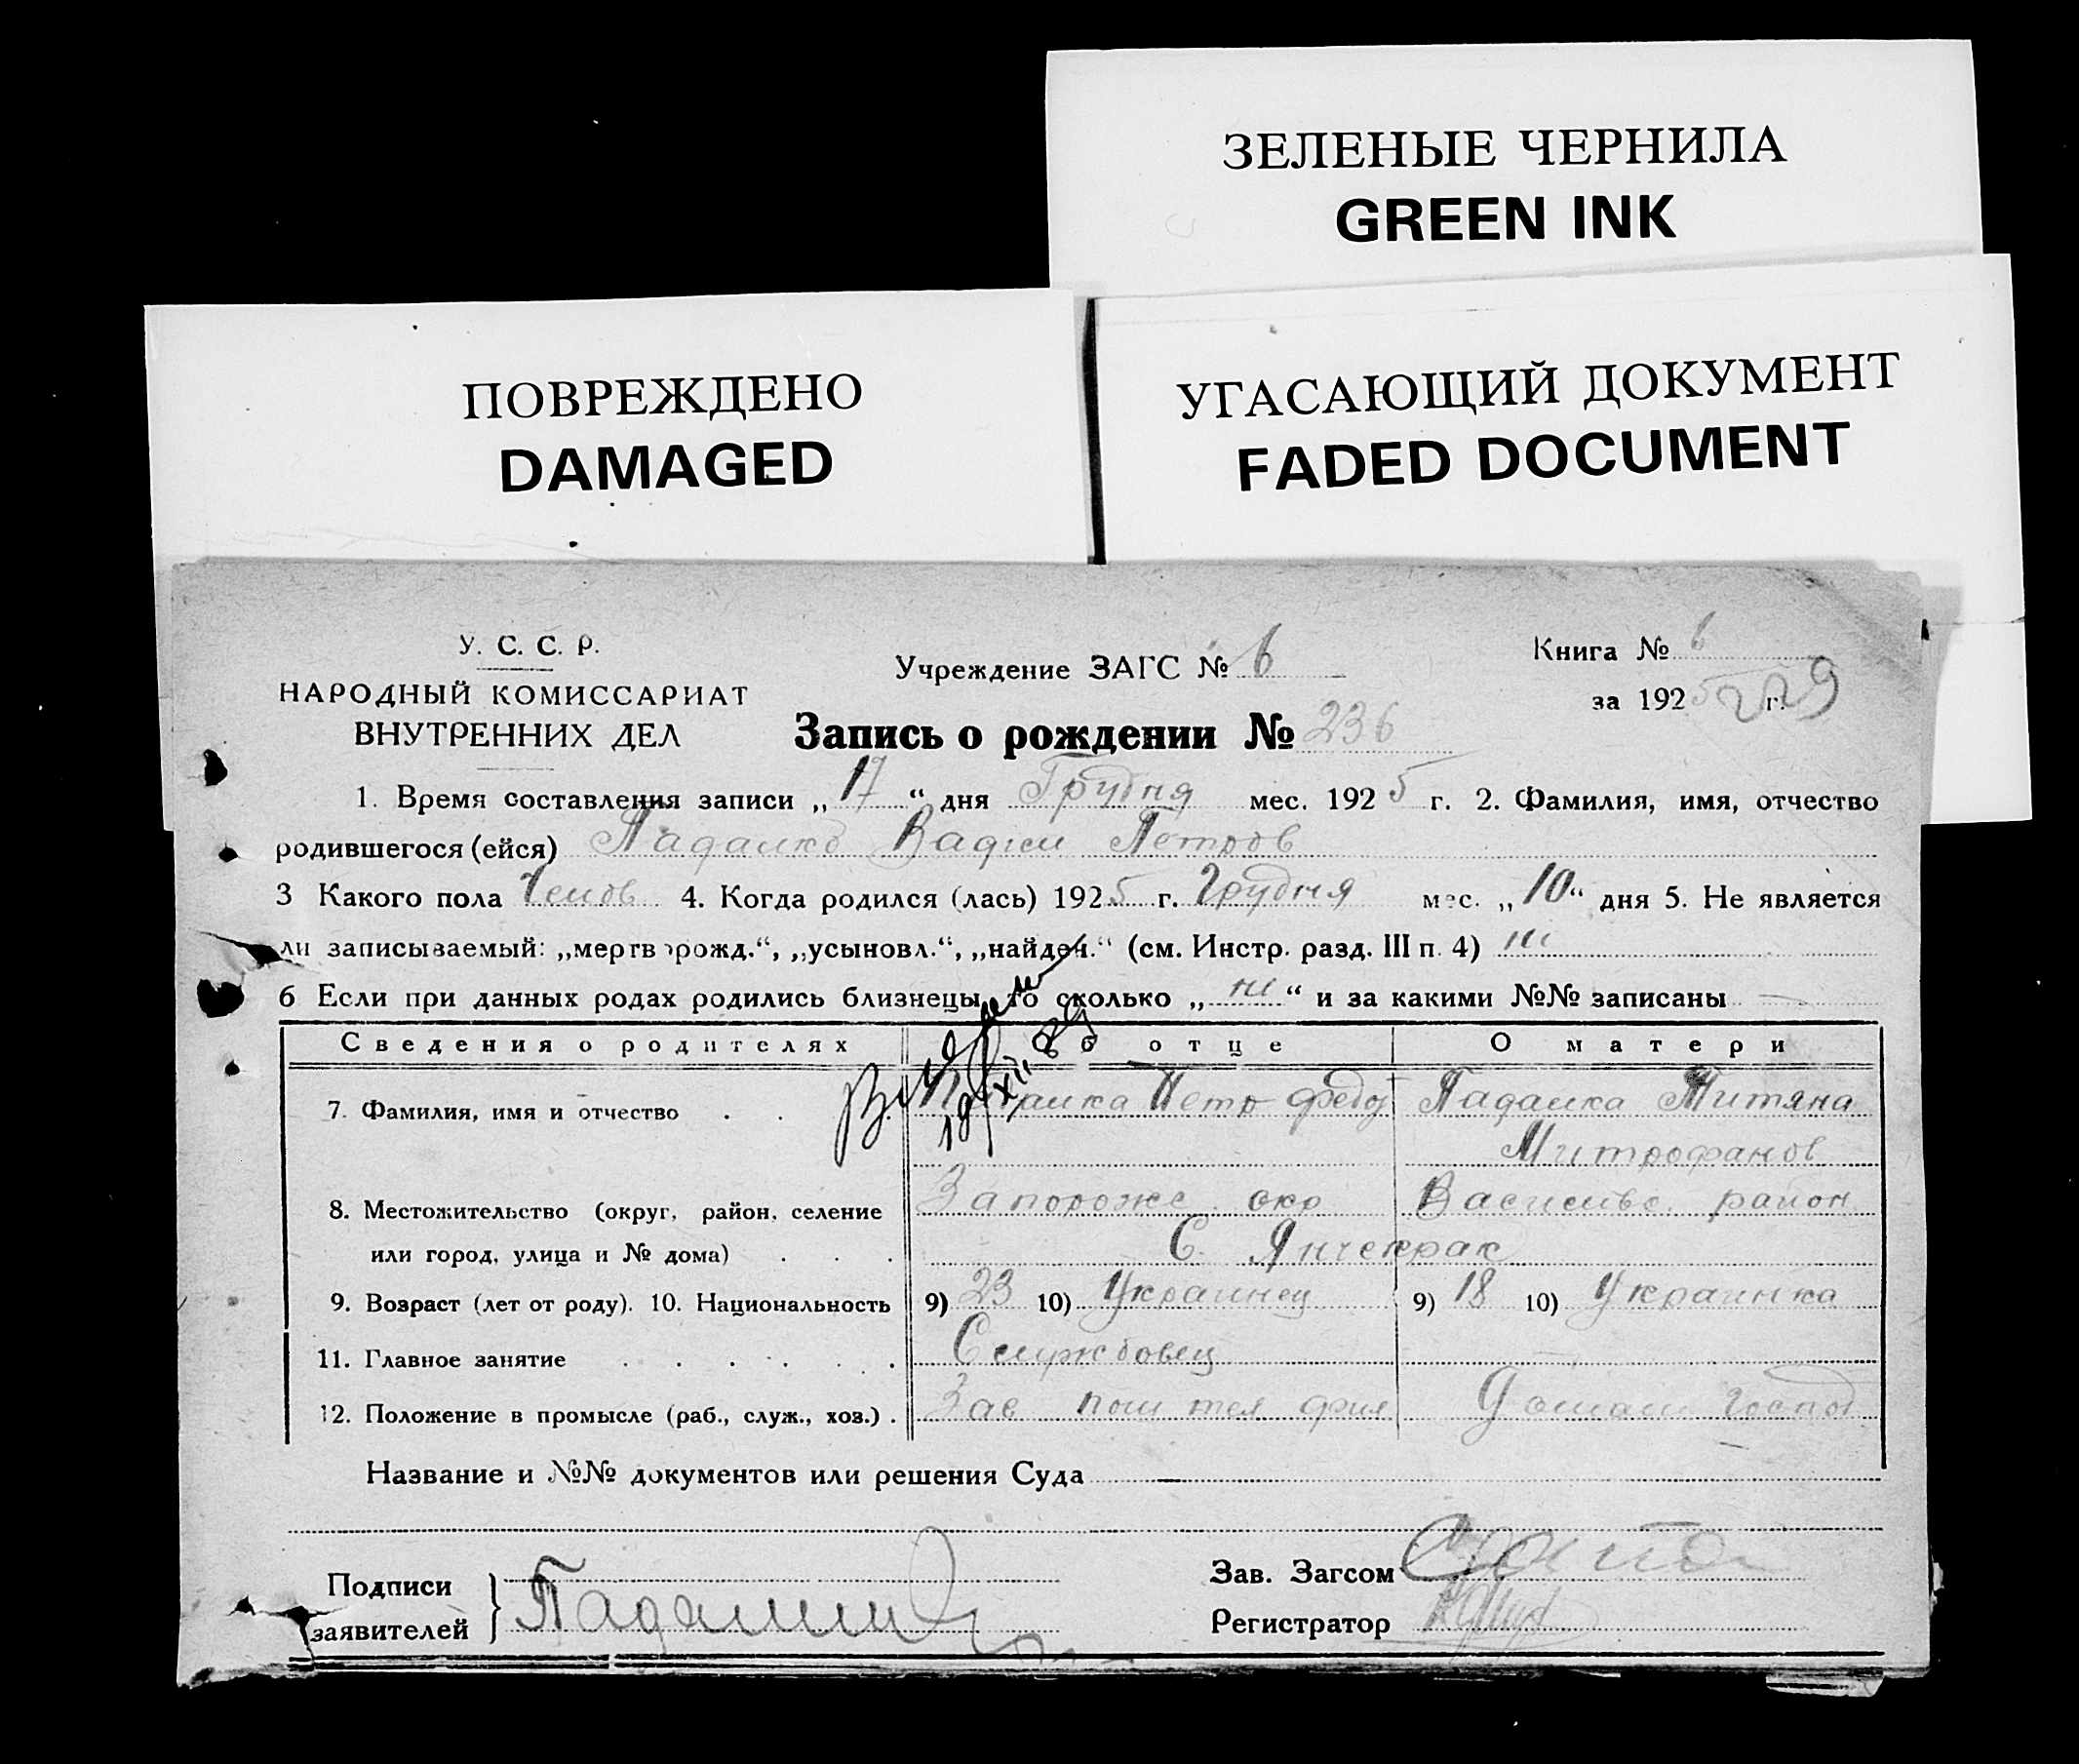 ЗЕЛЕНЫЕ ЧЕРНИЛА
GREEN INK
ПОВРЕЖДЕНО
DAMAGED
УГАСАЮЩИЙ ДОКУМЕНТ
FADED DOCUMENT
У. С. С. Р.
НАРОДНЫЙ КОМИССАРИАТ
ВНУТРЕННИХ ДЕЛ
Учреждение ЗАГС № 6
Книга № 6
за 1925 г.
Запись о рождении № 236
1. Время составления записи „17“ дня Грудня мес. 1925 г. 2. Фамилия, имя, отчество
родившегося (ейся) Падалко Вадим Петров
3 Какого пола Чолов 4. Когда родился (лась) 1925 г. Грудня мес. „10“ дня 5. Не является
ли записываемый: „мертворожд.“, „усыновл.“, „найден.“ (см. Инстр. разд. III п. 4) ні
6 Если при данных родах родились близнецы, то сколько „ні“ и за какими №№ записаны —
Сведения о родителях Об отце О матери
7. Фамилия, имя и отчество . . Падалка Петр Федо Падалка Титяна
Митрофанов
8. Местожительство (округ, район, селение Запорожс. окр Василивс. район
или город, улица и № дома) . . . С. Янчекрак
9. Возраст (лет от роду). 10. Национальность 9) 23 10) Украинец 9) 18 10) Украинка
11. Главное занятие . . . . . . Службовец
12. Положение в промысле (раб., служ., хоз.) . Зав пош тел філ Домаш госпо
Название и №№ документов или решения Суда —
Подписи
заявителей } Падалк
Зав. Загсом
Регистратор